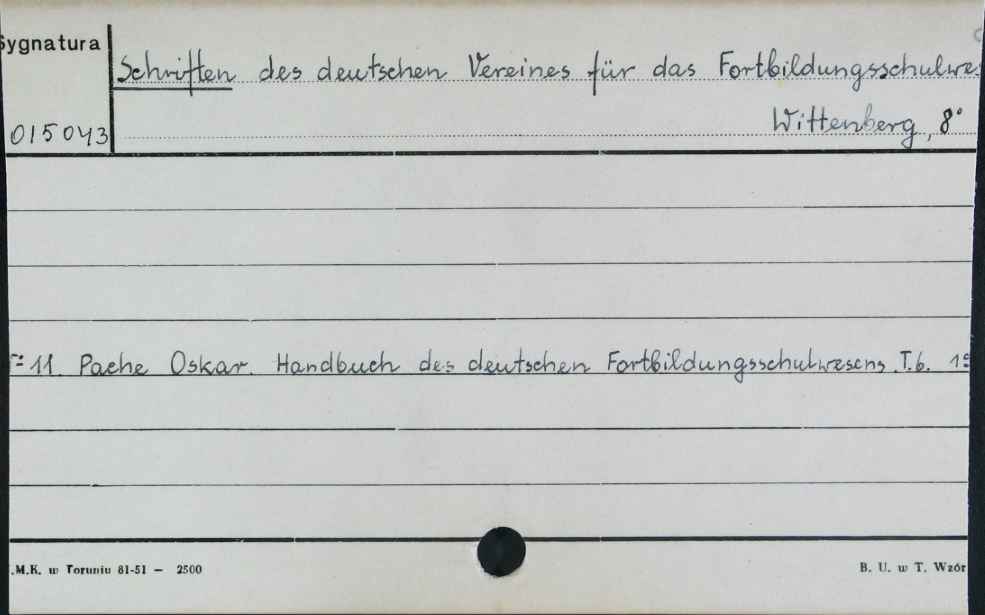 Sygnatura
Schriften des deutschen Vereines für das Fortbildungsschulwe
015043
Wittenberg, 8°
11. Pache Oskar. Handbuch des deutschen Fortbildungsschulwesens T.6.
.M.K. w Toruniu 81-51 — 2500
B. U. w T. Wzór